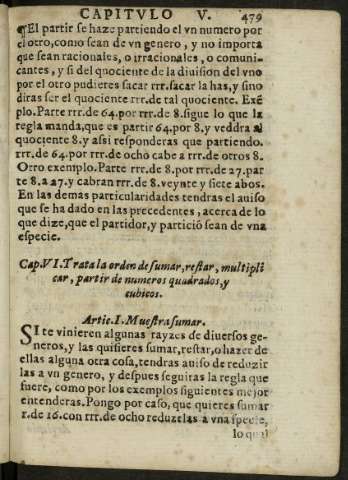 CAPITVLO V. 479
¶El partir se haze partiendo el vn numero por
el otro, como sean de vn genero, y no importa
que sean racionales, o irracionales, o comuni-
cantes, y si del quociente de la diuision del vno
por el otro pudieres sacar rrr. sacar la has, y sino
diras ser el quociente rrr. de tal quociente. Exē
plo. Parte rrr. de 64. por rrr. de 8. sigue lo que la
regla manda, que es partir 64. por 8. y veddra al
quociente 8. y assi responderas que partiendo.
rrr. de 64. por rrr. de ocho cabe a rrr. de otros 8.
Otro exemplo. Parte rrr. de 8. por rrr. de 27. par
te 8. a 27. y cabran rrr. de 8. veynte y siete abos.
En las demas particularidades tendras el auiso
que se ha dado en las precedentes, acerca de lo
que dize, que el partidor, y particiō sean de vna
especie.
Cap. VI. Trata la orden de sumar, restar, multipli
car, partir de numeros quadrados, y
cubicos.
Artic. I. Muestra sumar.
SI te vinieren algunas rayzes de diuersos ge-
neros, y las quisieres sumar, restar, o hazer de
ellas alguna otra cosa, tendras auiso de reduzir
las a vn genero, y despues seguiras la regla que
fuere, como por los exemplos siguientes mejor
entenderas. Pongo por caso, que quieres sumar
r. de 16. con rrr. de ocho reduzelas a vna specie,
lo qual